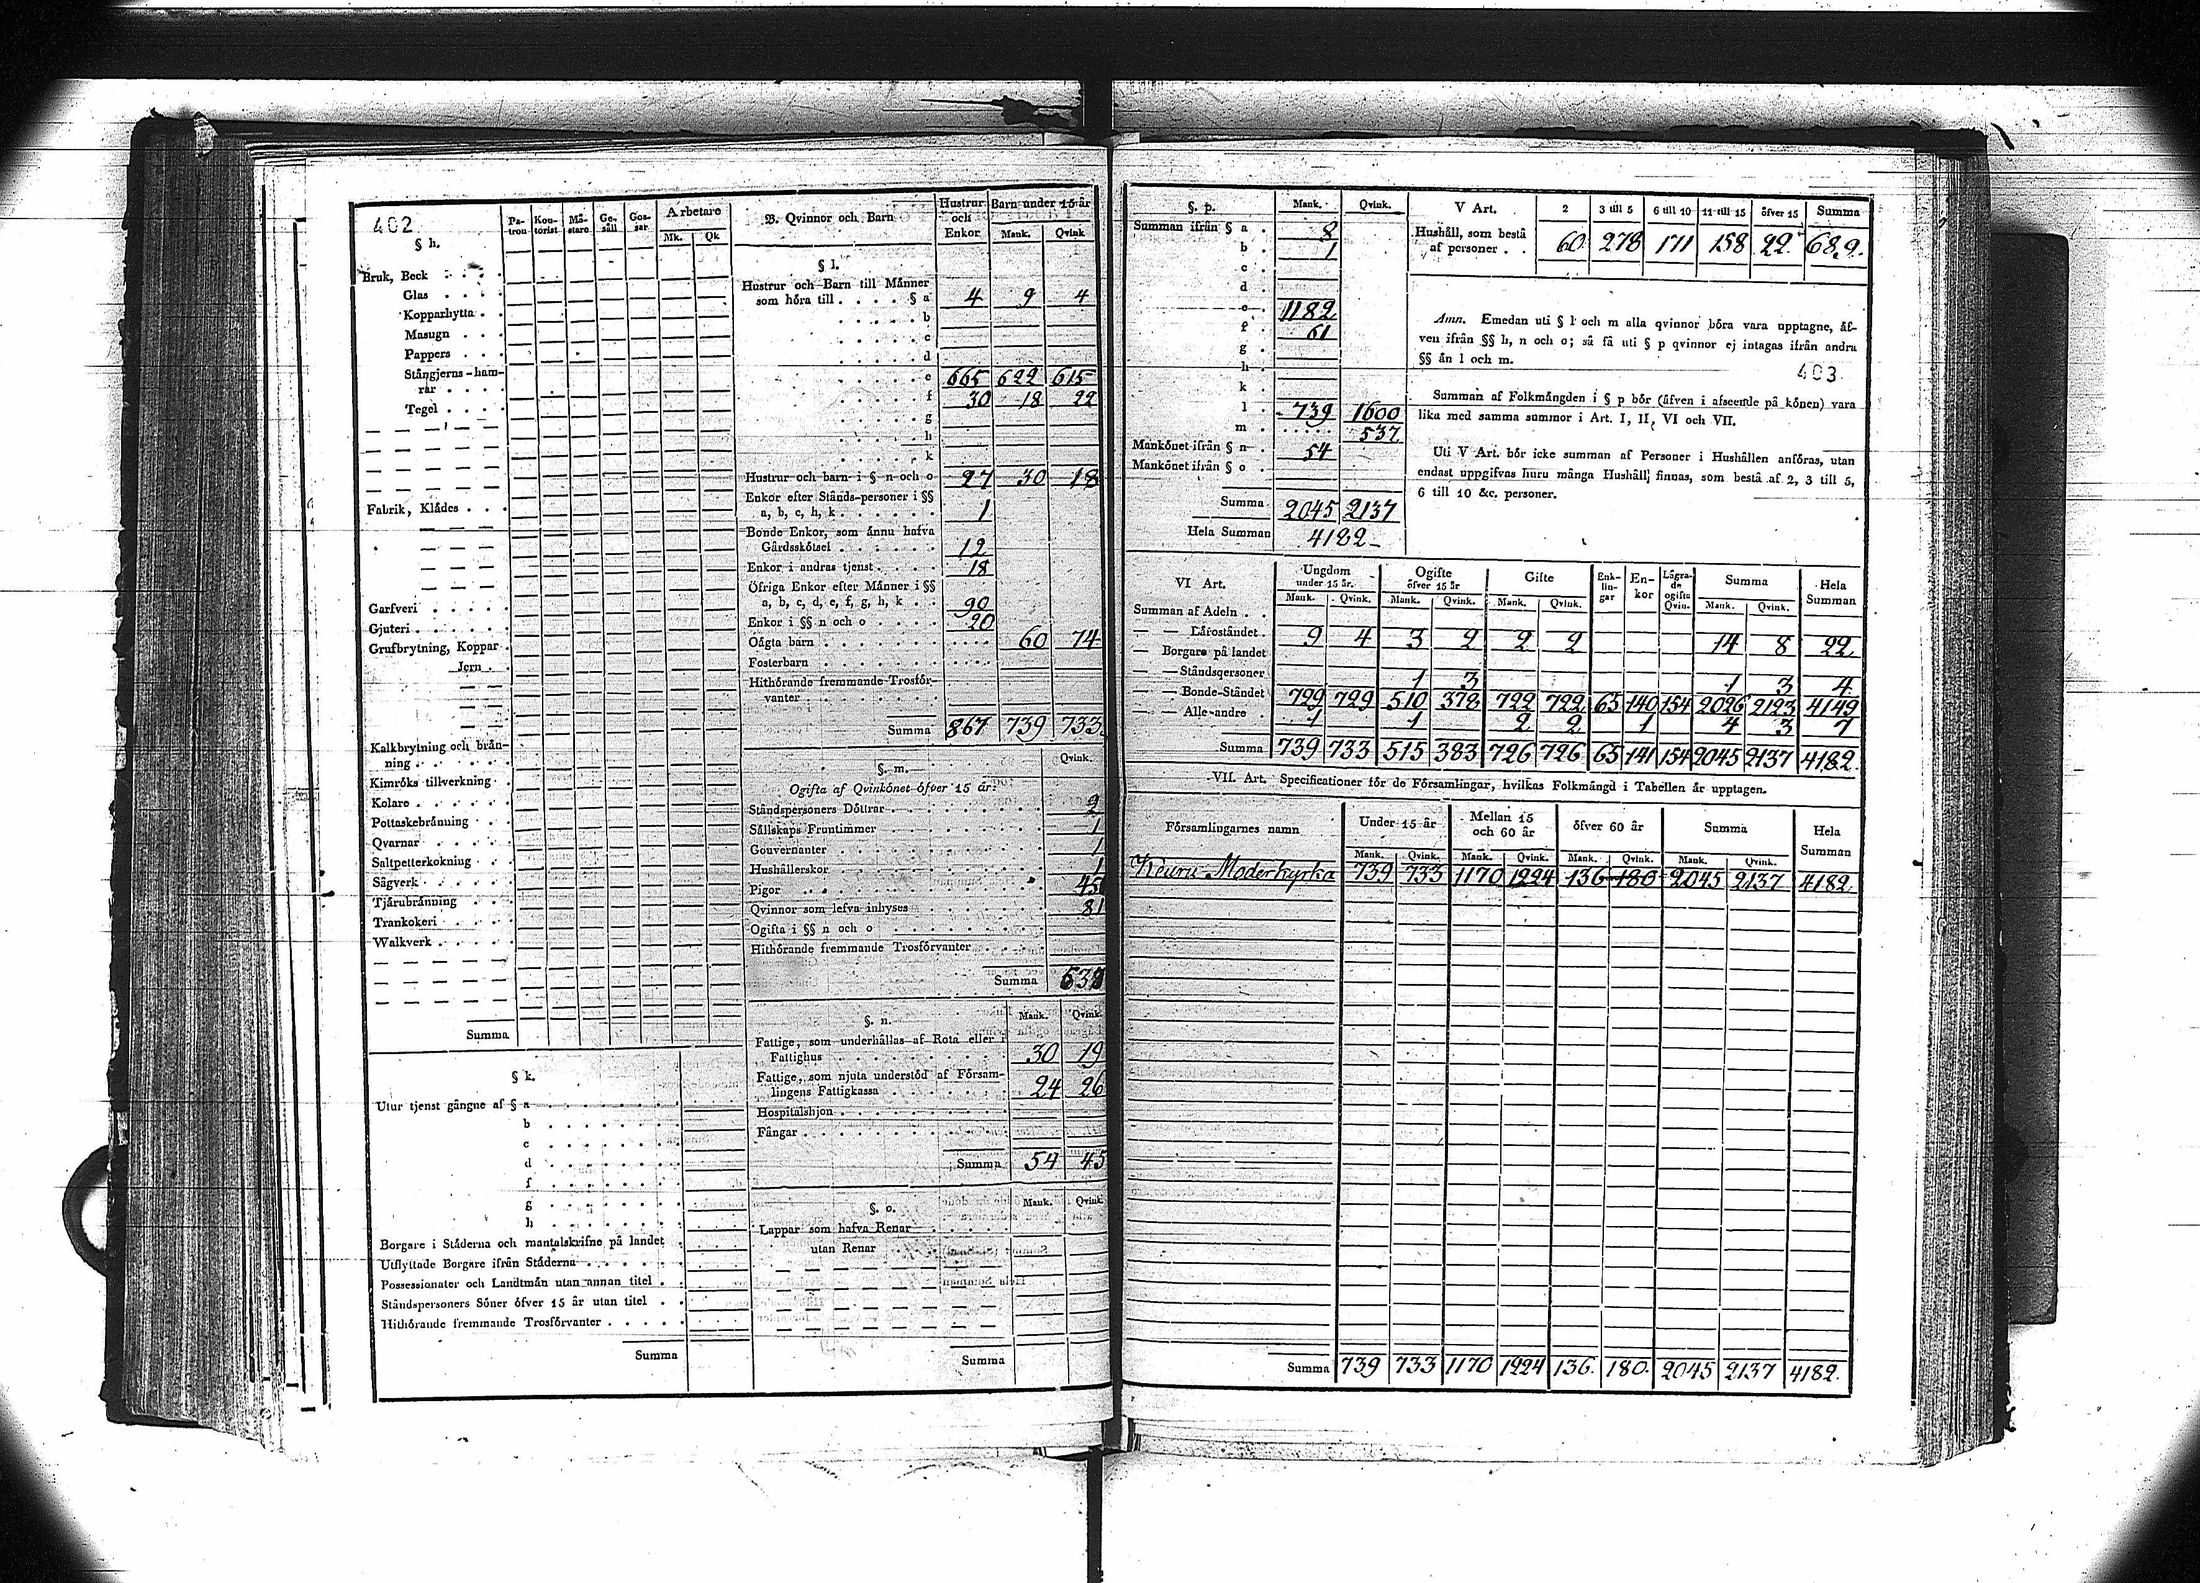 402
§ h.
Pa- tron Kon- torist Mä- stare Ge- säll Gos- sar Arbetare
Mk. Qk
Bruk, Beck
Glas
Kopparhytta
Masugn
Pappers
Stångjerns-ham-
rar
Tegel
Fabrik, Klädes
Garfveri
Gjuteri
Grufbrytning, Koppar
Jern
Kalkbrytning och brän-
ning
Kimröks tillverkning
Kolare
Pottaskebränning
Qvarnar
Saltpetterkokning
Sågverk
Tjärubränning
Trankokeri
Walkverk
Summa
§ k.
Utur tjenst gångne af § a
b
c
d
f
g
h
Borgare i Städerna och mantalskrifne på landet
Utflyttade Borgare ifrån Städerna
Possessionater och Landtmän utan annan titel
Ståndspersoners Söner öfver 15 år utan titel
Hithörande fremmande Trosförvanter
Summa
B. Qvinnor och Barn
Hustrur och Enkor Barn under 15 år
Mank. Qvink
§ l.
Hustrur och Barn till Männer
som höra till § a 4 9 4
b
c
d
e 665 622 615
f 30 18 22
g
h
k
Hustrur och barn i § n och o 27 30 18
Enkor efter Stånds-personer i §§
a, b, c, h, k 1
Bonde Enkor, som ännu hafva
Gårdsskötsel 12
Enkor i andras tjenst 18
Öfriga Enkor efter Männer i §§
a, b, c, d, e, f, g, h, k 90
Enkor i §§ n och o 20
Oägta barn 60 74
Fosterbarn
Hithörande fremmande Trosför-
vanter
Summa 867 739 733
§. m.
Qvink.
Ogifta af Qvinkönet öfver 15 år.
Ståndspersoners Döttrar 2
Sällskaps Fruntimmer 1
Gouvernanter 1
Hushållerskor 1
Pigor
Qvinnor som lefva inhyses 81
Ogifta i §§ n och o
Hithörande fremmande Trosförvanter
Summa
§. n.
Mank. Qvink
Fattige, som underhållas af Rota eller i
Fattighus 30 19
Fattige, som njuta understöd af Försam-
lingens Fattigkassa 24 26
Hospitalshjon
Fångar
Summa 54 45
§. o.
Mank. Qvink
Lappar som hafva Renar
utan Renar
Summa
§. p. Mank. Qvink.
Summan ifrån § a 8
b 1
c
d
e 1182
f 61
g
h
k
l 739 1600
m 537
Mankönet ifrån § n 54
Mankönet ifrån § o
Summa 2045 2137
Hela Summan 4182
V Art. 2 3 till 5 6 till 10 11 till 15 öfver 15 Summa
Hushåll, som bestå
af personer 60 278 171 158 22 689.
Anm. Emedan uti § l och m alla qvinnor böra vara upptagne, äf-
ven ifrån §§ h, n och o; så få uti § p qvinnor ej intagas ifrån andra
§§ än l och m.
403
Summan af Folkmängden i § p bör (äfven i afseende på könen) vara
lika med samma summor i Art. I, II, VI och VII.
Uti V Art. bör icke summan af Personer i Hushållen anföras, utan
endast uppgifvas huru många Hushåll, finnas, som bestå af 2, 3 till 5,
6 till 10 &c. personer.
VI Art. Ungdom under 15 år. Ogifte öfver 15 år Gifte Enk- lin- gar En- kor Lägra- de ogifta Qvin. Summa Hela Summan
Mank. Qvink. Mank. Qvink. Mank. Qvink. Mank. Qvink.
Summan af Adeln
— — Läroståndet 9 4 3 2 2 2 14 8 22
— Borgare på landet
— — Ståndspersoner 1 3 1 3 4
— — Bonde-Ståndet 729 729 510 378 722 722 65 140 154 2026 2123 4149
— — Alle andre 1 1 2 2 1 4 3 7
Summa 739 733 515 383 726 726 65 141 154 2045 2137 4182.
VII. Art. Specificationer för de Församlingar, hvilkas Folkmängd i Tabellen är upptagen.
Församlingarnes namn Under 15 år Mellan 15 och 60 år öfver 60 år Summa Hela Summan
Mank. Qvink. Mank. Qvink. Mank. Qvink. Mank. Qvink.
Keuru Moderkyrka 739 733 1170 1224 136 180 2045 2137 4182
Summa 739 733 1170 1224 136. 180. 2045 2137 4182.